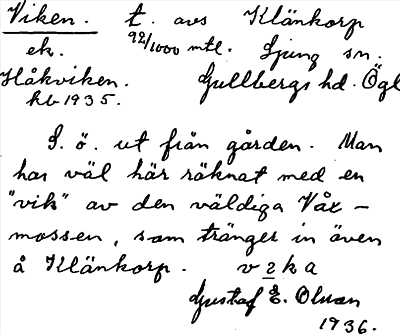 Viken. t. avs Klänkorp
ek. 92/1000 mtl. Ljung sn.
Håkviken. Gullbergs hd. Ögl
hb 1935.
S. ö. ut från gården. Man
har väl här räknat med en
"vik" av den väldiga Våx-
mossen, som tränger in även
å Klänkorp. v 2 k a
Gustaf E. Olsson
1936.